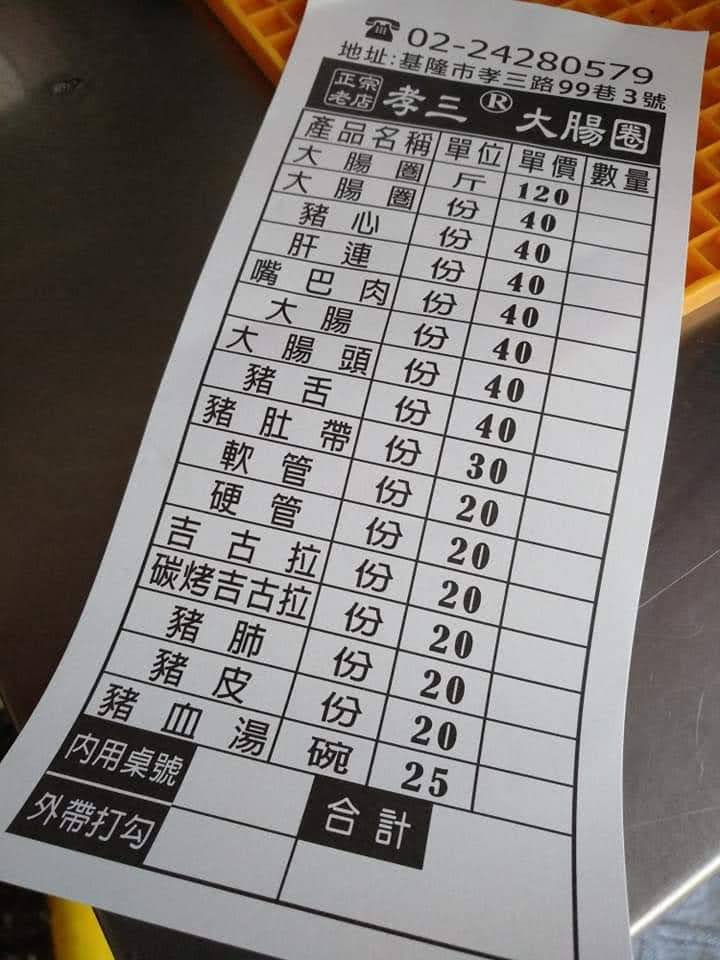 ☎ 02-24280579
地址:基隆市孝三路99巷3號
正宗老店 孝三® 大腸圈
產品名稱 單位 單價 數量
大腸圈 斤 120
大腸圈 份 40
豬心 份 40
肝連 份 40
嘴巴肉 份 40
大腸 份 40
大腸頭 份 40
豬舌 份 40
豬肚帶 份 30
軟管 份 20
硬管 份 20
吉古拉 份 20
碳烤吉古拉 份 20
豬肺 份 20
豬皮 份 20
豬血湯 碗 25
內用桌號 合計
外帶打勾